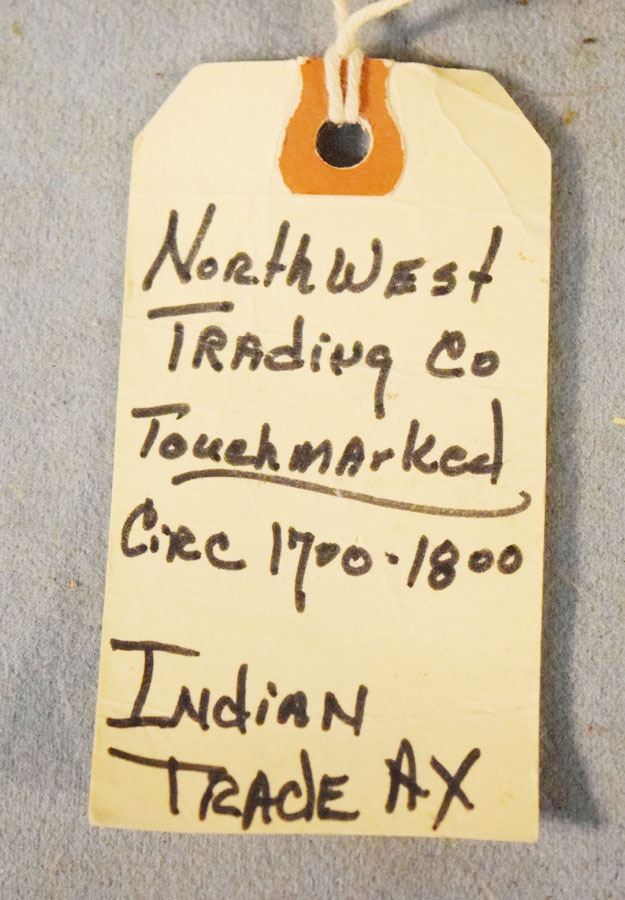 NorthWest
Trading Co
Touchmarked
Circ 1700-1800
Indian
Trade Ax